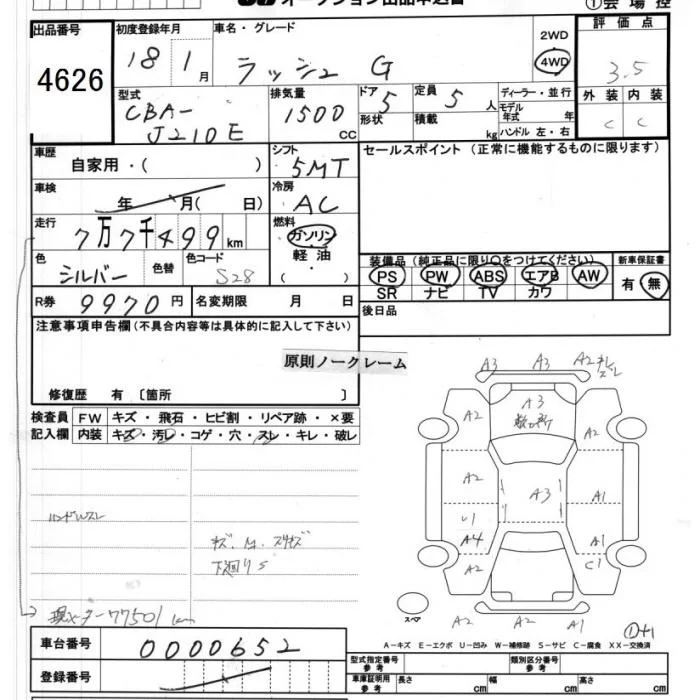 オークション出品申込書
①会場控
出品番号
4626
初度登録年月
18 1月
車名・グレード
ラッシュ G
2WD
4WD
評価点
3.5
外装 内装
C C
型式
CBA-
J210E
排気量
1500
CC
ドア 5
形状
定員 5 人
積載 kg
ディーラー・並行
モデル
年式 年
ハンドル 左・右
車歴
自家用・( )
シフト
5MT
セールスポイント(正常に機能するものに限ります)
車検
年 月( 日)
冷房
AC
走行
7万7千499km
燃料
ガソリン
軽油
( )
色
シルバー
色替
色コード
S28
装備品(純正品に限り○をつけてください)
PS PW ABS エアB AW
SR ナビ TV カワ
新車保証書
有・無
R券 9970円
名変期限 月 日
後日品
注意事項申告欄(不具合内容等は具体的に記入して下さい)
原則ノークレーム
修復歴 有〔箇所 〕
検査員
記入欄
FW キズ・飛石・ヒビ割・リペア跡・×要
内装 キズ・汚レ・コゲ・穴・スレ・キレ・破レ
ハンドルスレ
キズ. M. スリキズ
下廻りS
現メーター77501km
A3 A3 A2
A2 A3 A2
A2 A3 A1
A4 A1
A2 C1
A2 A2 A1
スペア
A-キズ E-エクボ U-凹み W-補修跡 S-サビ C-腐食 XX-交換済
車台番号
0000652
登録番号
型式指定番号
参考
類別区分番号
参考
車庫証明用
参考
長さ cm 幅 cm 高さ cm